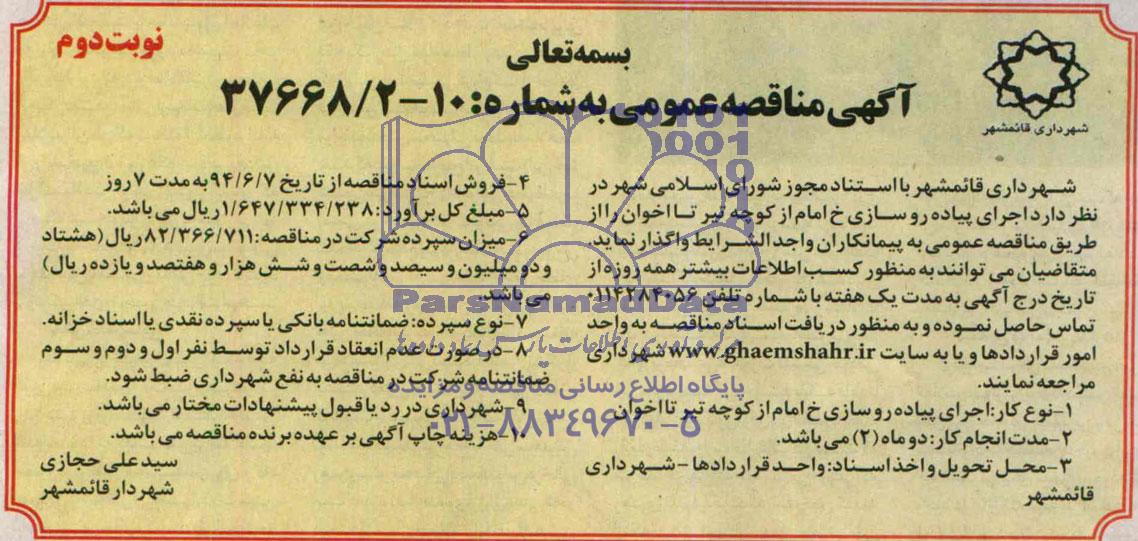 نوبت دوم
بسمه تعالی
آگهی مناقصه عمومی به شماره: ۱۰-۳۷۶۶۸/۲
شهرداری قائمشهر
شهرداری قائمشهر با استناد مجوز شورای اسلامی شهر در
نظر دارد اجرای پیاده رو سازی خ امام از کوچه تیر تا اخوان را از
طریق مناقصه عمومی به پیمانکاران واجد الشرایط واگذار نماید.
متقاضیان می توانند به منظور کسب اطلاعات بیشتر همه روزه از
تاریخ درج آگهی به مدت یک هفته با شماره تلفن ۰۱۱۴۲۸۴۰۵۶
تماس حاصل نموده و به منظور دریافت اسناد مناقصه به واحد
امور قراردادها و یا به سایت www.ghaemshahr.ir شهرداری
مراجعه نمایند.
۱-نوع کار: اجرای پیاده رو سازی خ امام از کوچه تیر تا اخوان
۲-مدت انجام کار: دو ماه (۲) می باشد.
۳-محل تحویل و اخذ اسناد: واحد قراردادها - شهرداری
قائمشهر
۴-فروش اسناد مناقصه از تاریخ ۹۴/۶/۷ به مدت ۷ روز
۵-مبلغ کل برآورد: ۱/۶۴۷/۳۳۴/۲۳۸ ریال می باشد.
۶-میزان سپرده شرکت در مناقصه: ۸۲/۳۶۶/۷۱۱ ریال (هشتاد
و دو میلیون و سیصد و شصت و شش هزار و هفتصد و یازده ریال)
می باشد.
۷-نوع سپرده: ضمانتنامه بانکی یا سپرده نقدی یا اسناد خزانه.
۸-در صورت عدم انعقاد قرارداد توسط نفر اول و دوم و سوم
ضمانتنامه شرکت در مناقصه به نفع شهرداری ضبط شود.
۹-شهرداری در رد یا قبول پیشنهادات مختار می باشد.
۱۰-هزینه چاپ آگهی بر عهده برنده مناقصه می باشد.
سید علی حجازی
شهردار قائمشهر
ParsNamadData
پایگاه اطلاع رسانی مناقصه و مزایده
۰۲۱-۸۸۳۴۹۶۷۰-۵